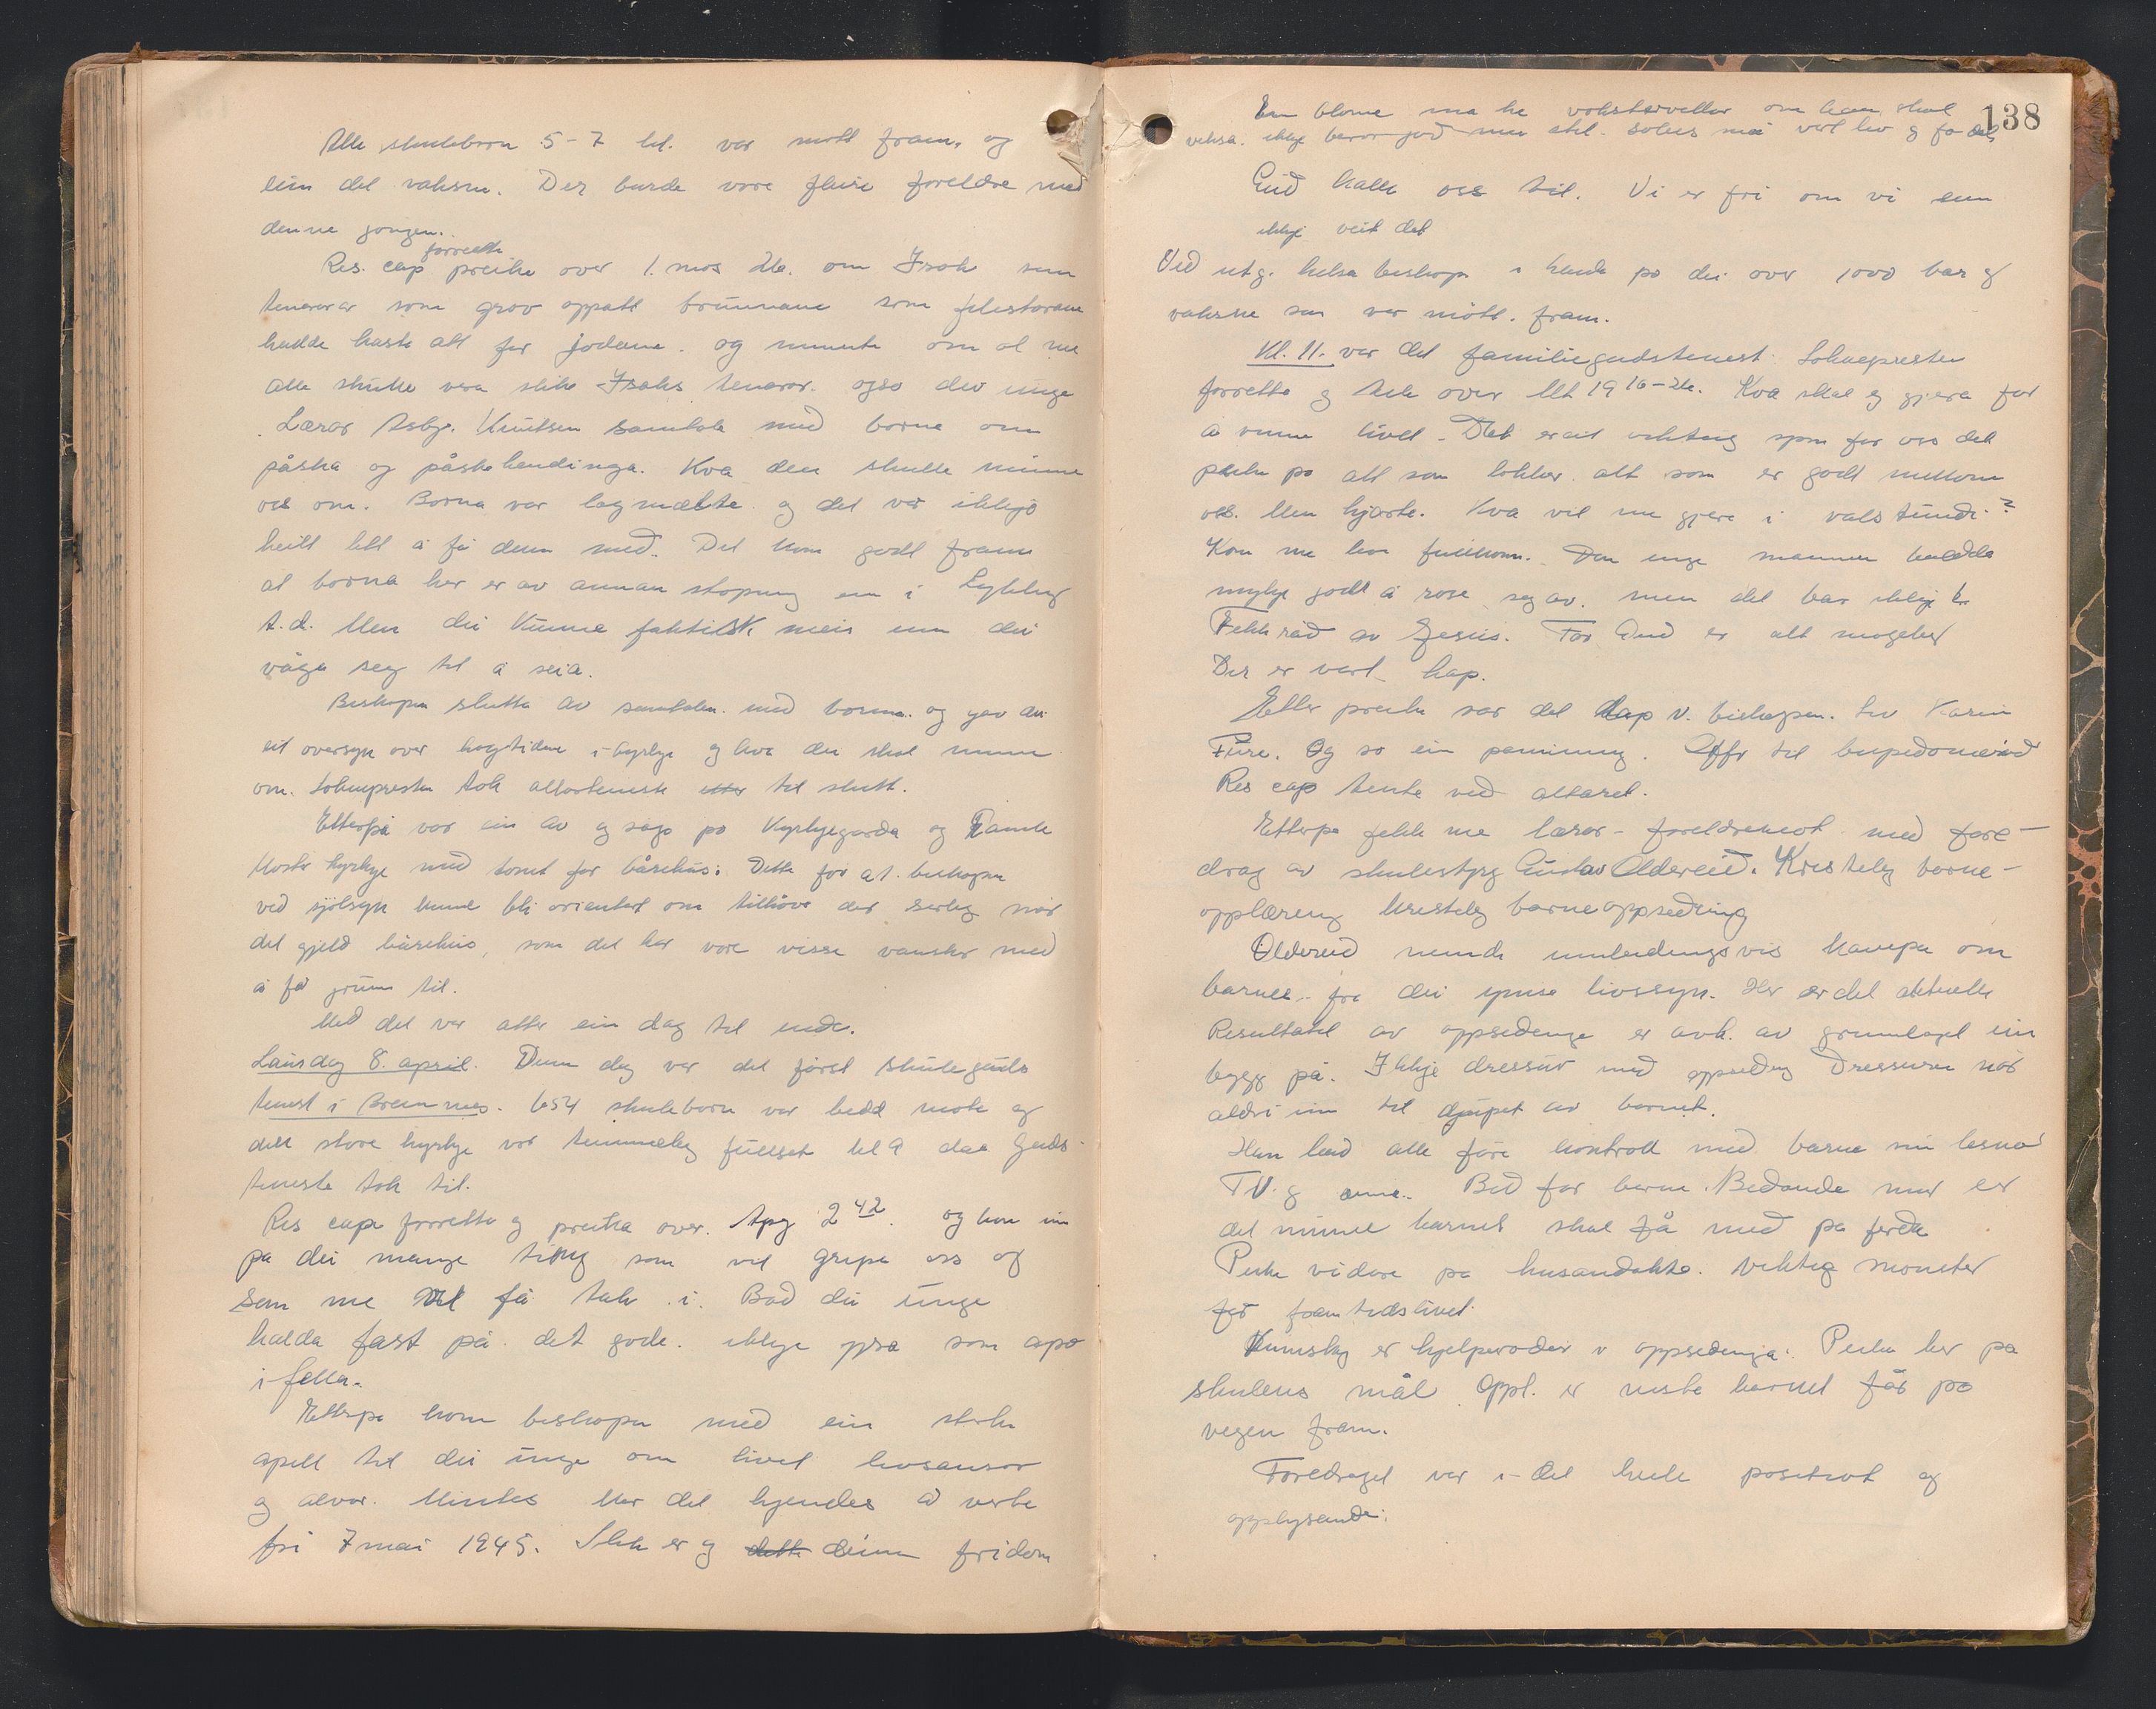 Alle skuleborn 5-7 kl. var mött fram, og
ein del vaksne. Der burde vore fleire foreldre med
denne gongen.
forrette
Res. cap preike over 1. mos 26. om Isak sum
tenarar som grov oppatt brunnane som filistarane
hadde kasta att for jødane. og minnte om at me
alle skulle vera slike Isaks tenarar. ogso dei unge
Lærar Asbj. Knutsen samtala med borna om
påska og påskehendinga. Kva den skulle minne
oss om. Borna var lagmælte og det var ikkje
heilt lett å få dem med. Det kom godt fram
at borna her er av annan stoping enn i
t.d. Men dei kunne faktisk meir enn dei
våga seg til å seia.
Biskopen slutta av samtalen med borna. og gav dei
eit oversyn over høgtidene i kyrkja og kva dei skal minne
om. Soknepresten tok altartenesta etter til slutt.
Etterpå var ein av og såg på Kyrkjegarda og Gamle
Moster kyrkje med tomt for bårehus. Dette for at biskopen
ved sjølsyn kunne bli orientert om tilhøva der serleg når
det gjeld bårehus, som det har vore visse vansker med
å få grunn til.
Med det var atter ein dag til ende.
Laurdag 8. april. Denne dag var det først skuleguds
tenest i Bremnes. 654 skuleborn var bedd møte og
den store kyrkje var temmeleg fullset kl 9 daa Guds-
tenesta tok til.
Res cap forretta og preika over. Apg 2 42. og kom inn
på dei mange ting som vil gripe oss og
som me vil få tak i. Bad dei unge
halda fast på det gode. ikkje gjera som apa
i fella.
Etterpå kom biskopen med ein sterk
apell til dei unge om livet livsansvar
og alvor. Mintes kor det kjendes å verte
fri 7 mai 1945. Slik er og dette din fridom
138
Ein blome må ha vokstervilkor om han skal
veksa. ikkje berre jord men stel. Soleis må vert liv og få det
Gud kalle oss til. Vi er fri om vi enn
ikkje veit det
Ved utg. helsa biskopen i handa på dei over 1000 bar og
vaksne som var mött. fram.
Kl. 11. var det familiegudstenest. Soknepresten
forretta og tala over Mt 19 16-26. Kva skal eg gjera for
å vinne livet. Det er eit viktig spm for oss det
peika på alt som lokkar. alt som er godt mellom
oss. Men hjarta. Kva vil me gjere i valstund?
Kan me leva fullkom. Den unge mannen hadde
mykje godt å rose seg av. men det bar ikkje
Fekk råd av Jesus. For Gud er alt mogeleg
Der er vart hap.
Etter preika var det dåp v. biskopen. Liv Karin
Fure. Og so ein påminning. Offer til bispedømeråd
Res cap tente ved altaret.
Etterpå fekk me lærar- foreldremøt med fore-
drag av skulestyrg Gustav Oldereid. Kristeleg borne-
opplæring kristeleg barneoppseding
Oldereid nemnde innleidingsvis kampen om
barnet. fra dei ymse livssyn. Her er det aktuelle
Resultatet av oppsedinga er avh. av grunnlaget ein
bygg på. Ikkje dressur med oppseding Dressuren når
aldri inn til djupet av barnet.
Han bad alle føre kontroll med barna sin lesnad
TV. og anna. Bed for borna. Bedande mor er
det minne barnet skal få med på ferda
Peika vidare på husandakta. viktig mønster
for framtidslivet.
Kunnskap er hjelperåder v oppsedinga. Peika her på
skulens mål. Oppl. er neste barnet får på
vegen fram.
Foredraget var i det heile positivt og
opplysande.